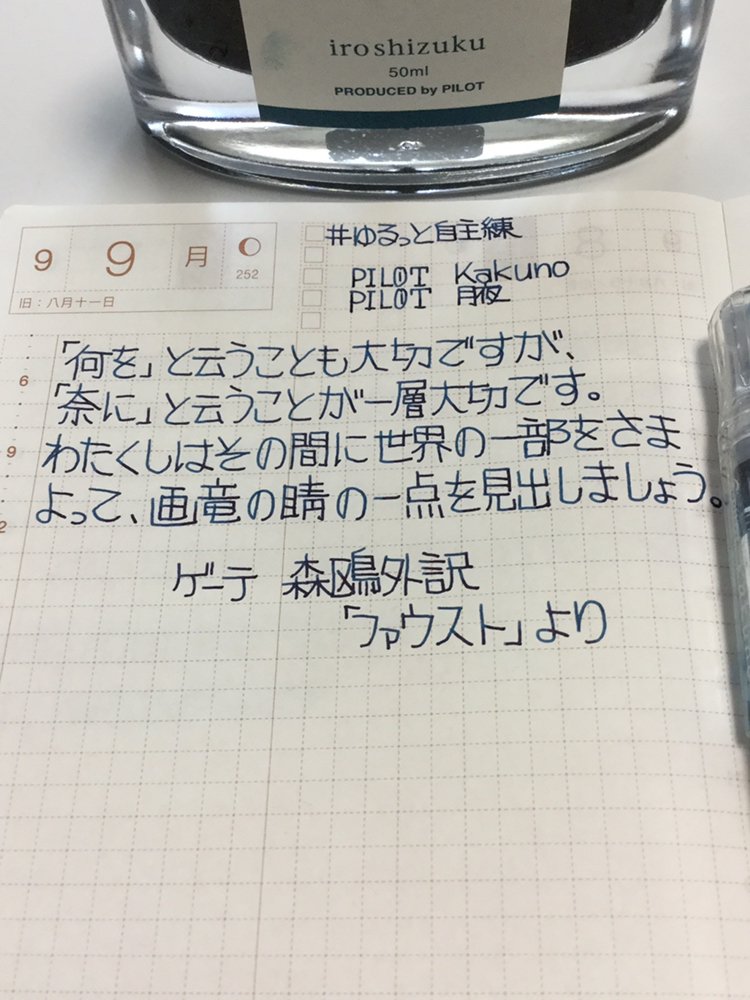 iroshizuku
50ml
PRODUCED by PILOT
9 9 月
252
旧：八月十一日
#ゆるっと自主練
PILOT Kakuno
PILOT 月夜
6
「何を」と云うことも大切ですが、
「奈に」と云うことが一層大切です。
9
わたくしはその間に世界の一部をさま
よって、画竜の睛の一点を見出しましょう。
2
ゲーテ 森鴎外訳
「ファウスト」より